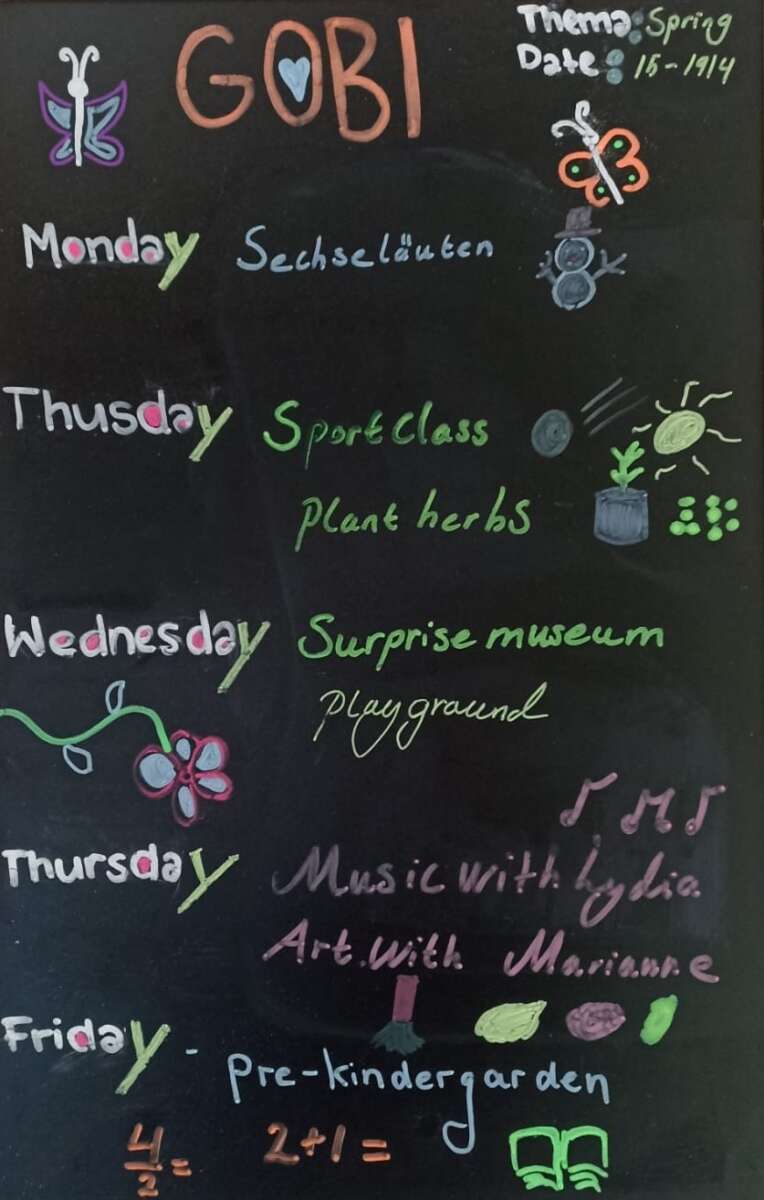 GOBI
Thema: Spring
Date: 15-19/4
Monday Sechseläuten
Thusday Sport Class
Plant herbs
Wednesday Surprise museum
playground
Thursday Music with Lydia
Art. with Marianne
Friday - Pre-kindergarden
4/2= 2+1=